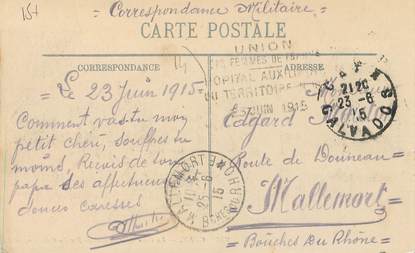 15+
= Correspondance Militaire =
CARTE POSTALE
CORRESPONDANCE
ADRESSE
UNION
DES FEMMES DE
HOPITAL AUXILIAIRE
DU TERRITOIRE
JUIN 1915
CALVADOS
21 20
23 - 6
15
= Le 23 Juin 1915 =
Comment vas-tu mon
petit chéri, souffres tu
moins, Reçois de ton
papa ses affectueuses
douces caresses
MALLEMORT
25 - 6
15
Edgard
Route de
Mallemort
= Bouches Du Rhône =